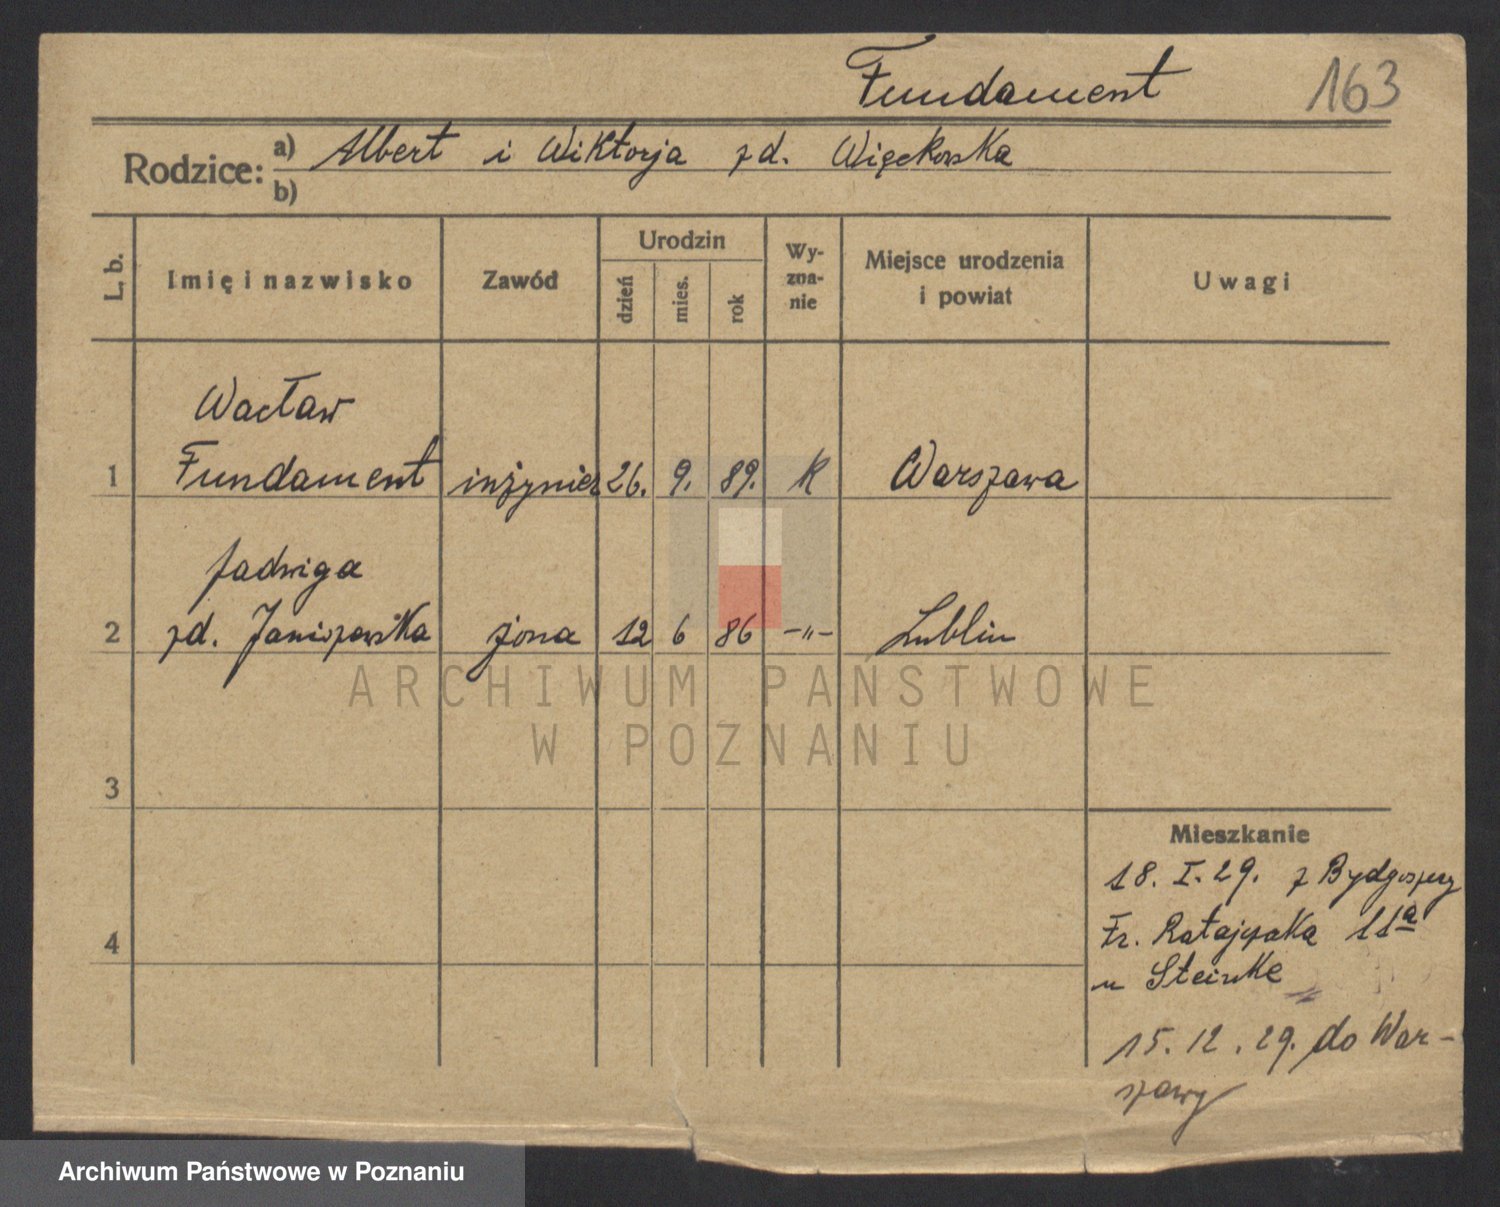 Fundament 163
Rodzice: a) Albert i Wiktorja zd. Więckowska
b)
L. b. Imię i nazwisko Zawód Urodzin dzień mies. rok Wy-zna-nie Miejsce urodzenia i powiat Uwagi
Wacław
1 Fundament inżynier 26. 9. 89. K Warszawa
Jadwiga
2 zd. Janiszewska żona 12 6 86 -"- Lublin
ARCHIWUM PAŃSTWOWE
W POZNANIU
3
Mieszkanie
18. I. 29. z Bydgoszczy
4 Fr. Ratajczaka 11a
u Steinke
15. 12. 29. do War-
szawy
Archiwum Państwowe w Poznaniu